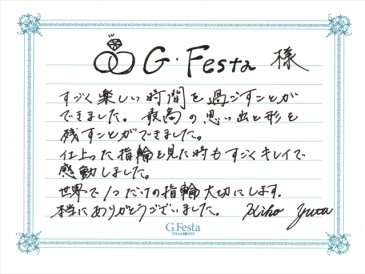 G.Festa 様
すごく楽しい時間を過ごすことが
できました。最高の思い出と形を
残すことができました。
仕上った指輪を見た時もすごくキレイで
感動しました。
世界で1つだけの指輪大切にします。
本当にありがとうございました。 Kiho Yuta
G.Festa